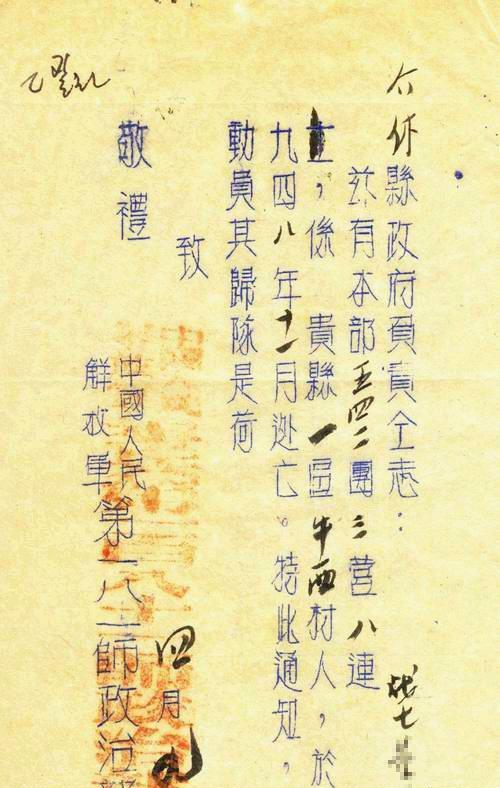 介休縣政府負責仝志：
兹有本部五四二團三营八連
士，係 貴縣一區牛西村人，於
九四八年十一月逃亡。特此通知，
動員其歸隊是荷
致
敬禮
中國人民
解放軍
第一八一師政治
四月九